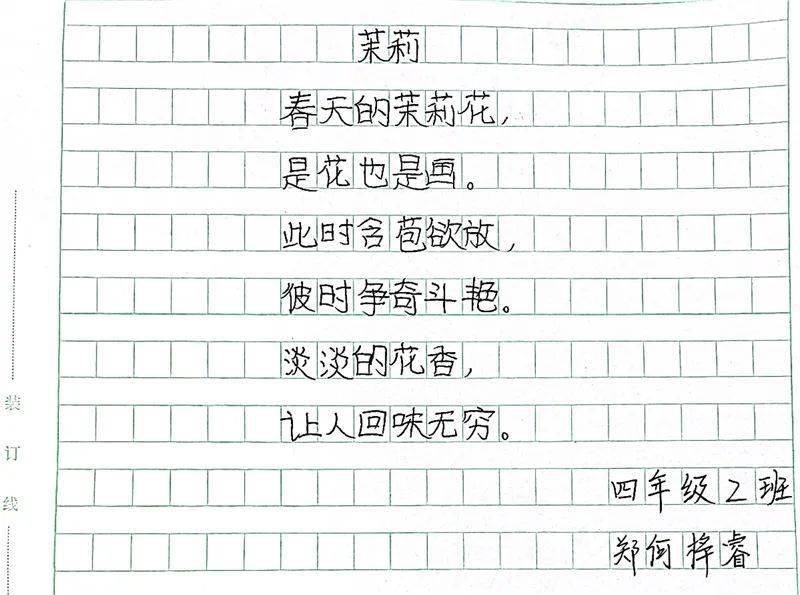 茉莉
春天的茉莉花，
是花也是画。
此时含苞欲放，
彼时争奇斗艳。
淡淡的花香，
让人回味无穷。
四年级2班
郑何梓睿
装订线